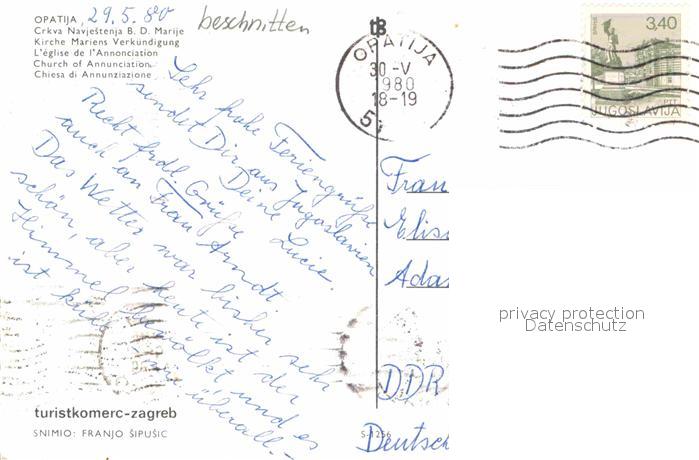 OPATIJA, 29.5.80
Crkva Navještenja B. D. Marije
Kirche Mariens Verkündigung
L'église de l'Annonciation
Church of Annunciation
Chiesa di Annunziazione
beschnitten
Sehr frohe Feriengrüße
sendet Dir aus Jugoslavien
Deine Lucie.
Recht frdl. Grüße
auch an Frau Arndt
Das Wetter war bisher sehr
schön, aber heute ist der
Himmel bewölkt und es
ist kühl überall.-
OPATIJA
30 -V
1980
18-19
51
3,40
JUGOSLAVIJA
Frau
Elis
Ada
DDR
Deutsch
privacy protection
Datenschutz
turistkomerc-zagreb
SNIMIO: FRANJO ŠIPUŠIC
S-1256